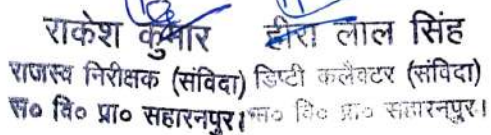 राकेश कुमार हीरा लाल सिंह
राजस्व निरीक्षक (संविदा) डिप्टी कलैक्टर (संविदा)
स० वि० प्रा० सहारनपुर। स० वि० प्रा० सहारनपुर।